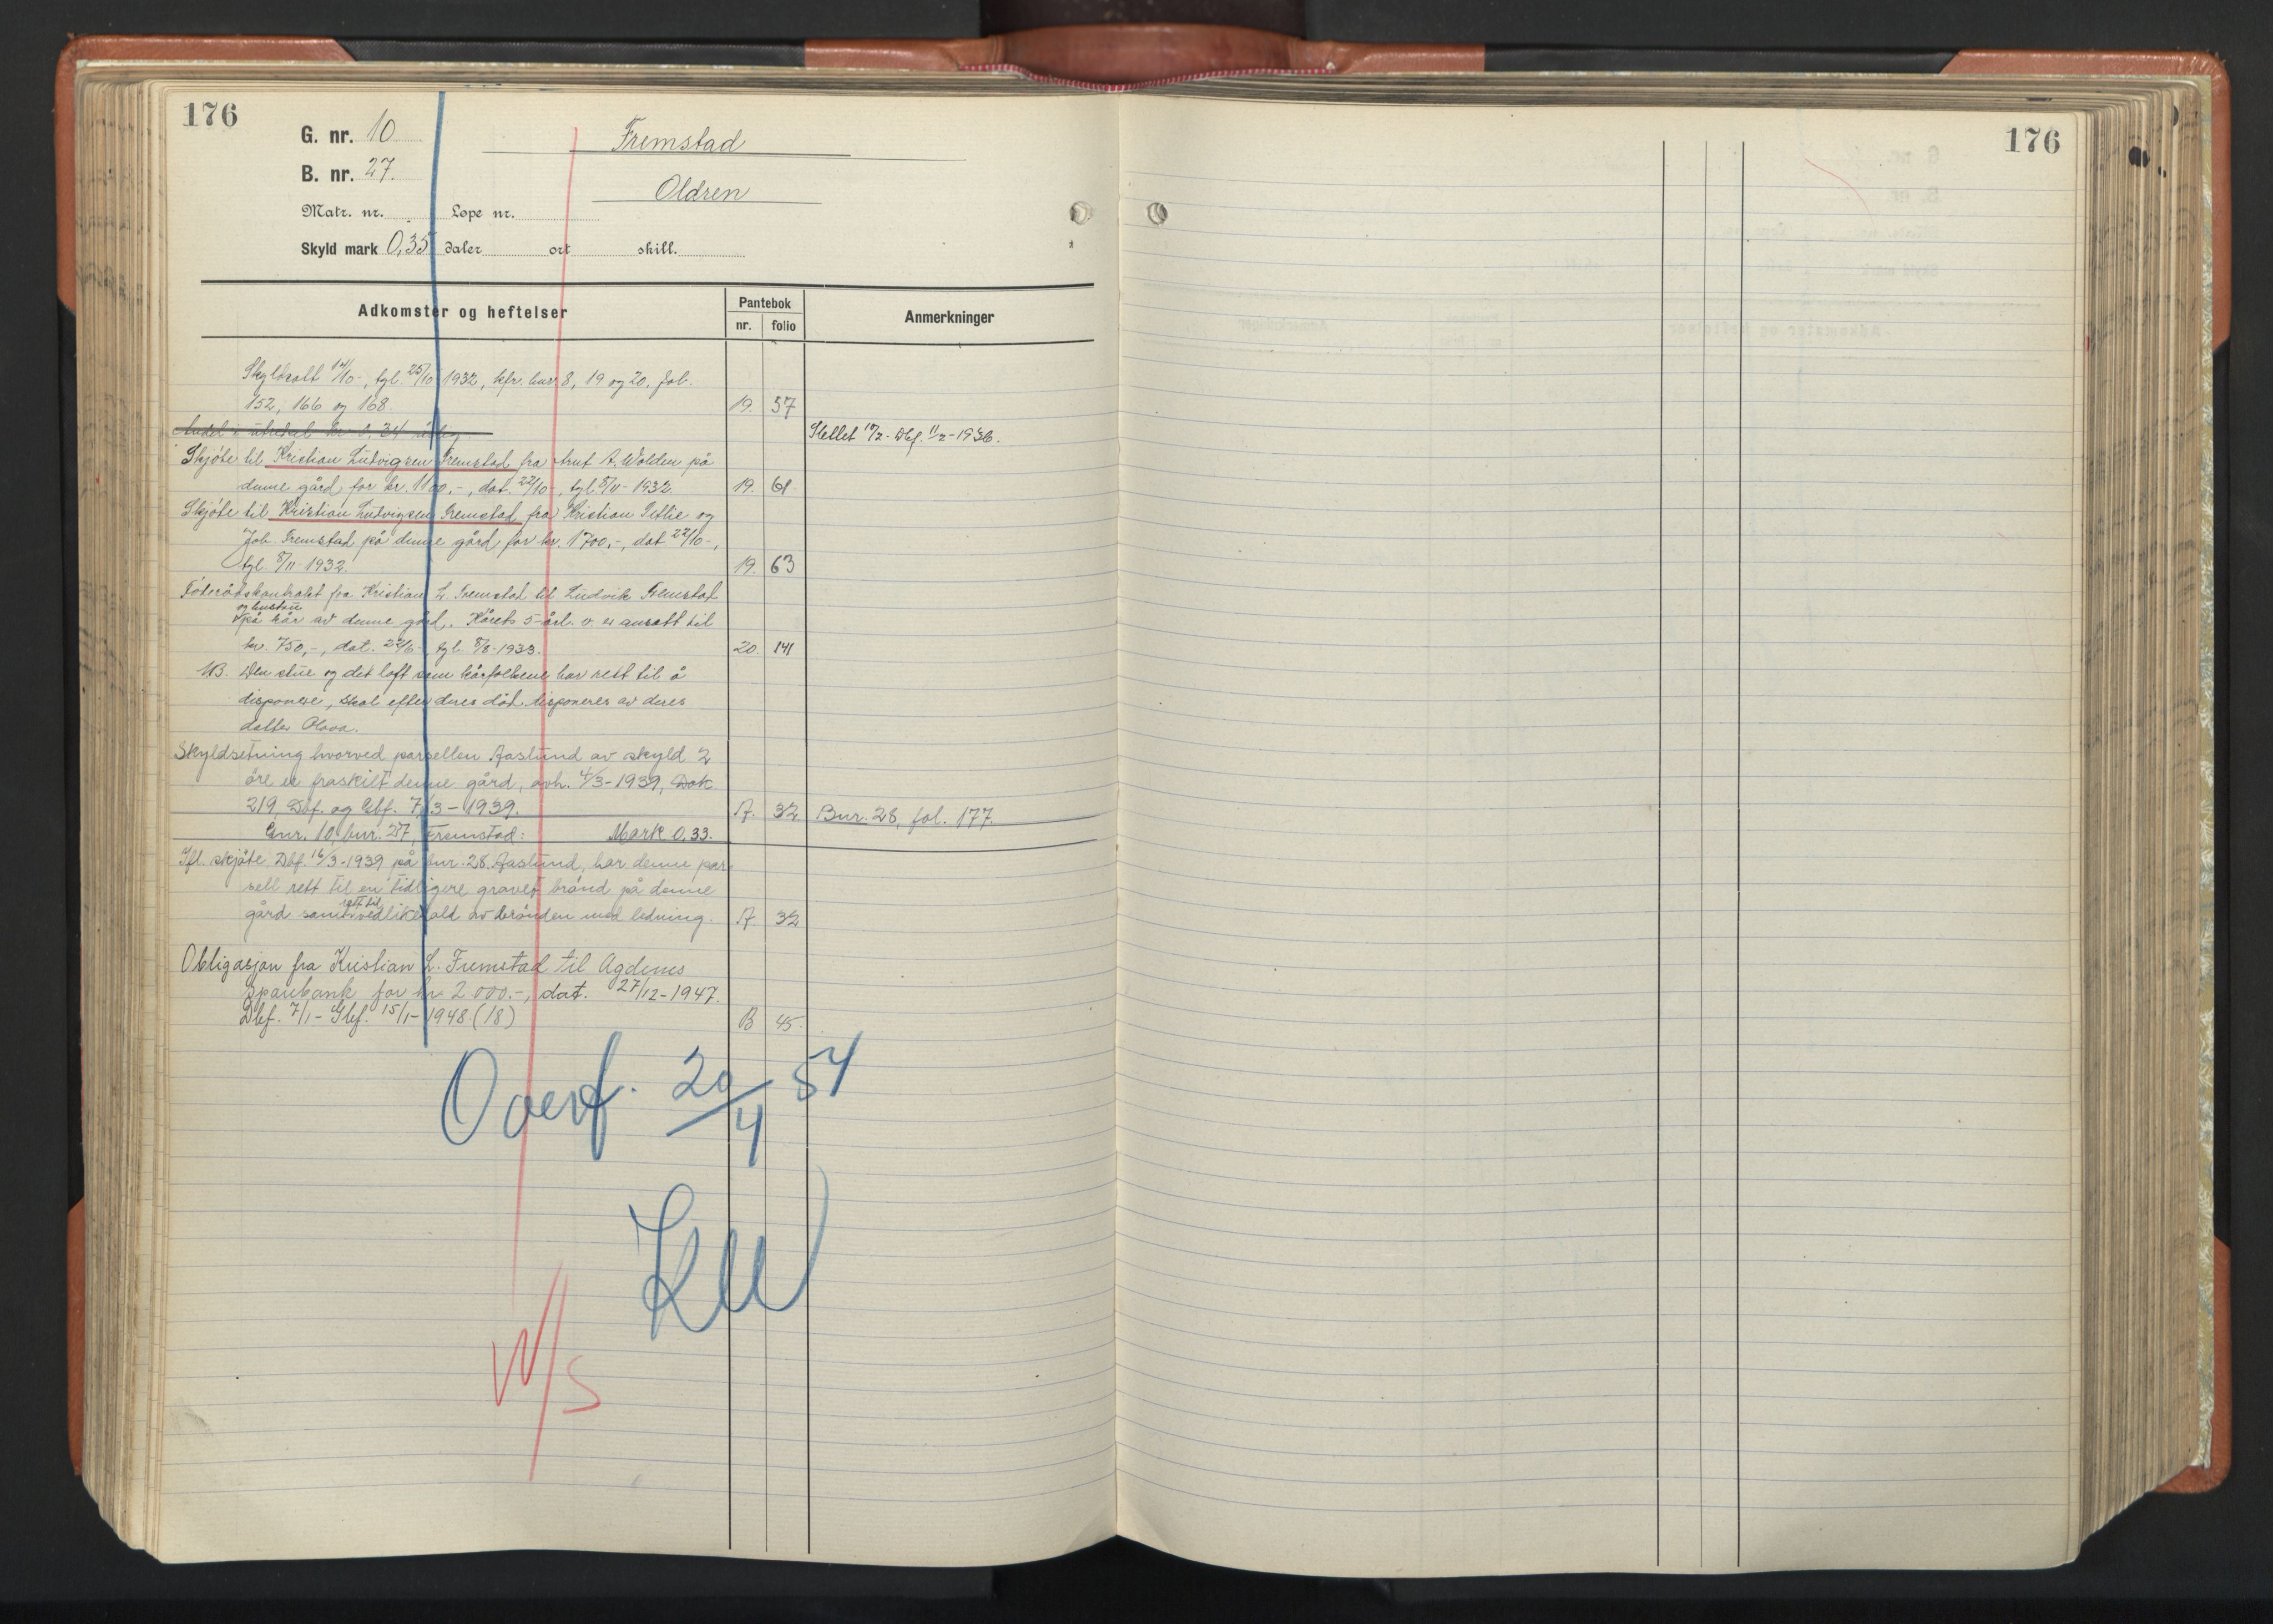 176
G. nr. 10
Fremstad
B. nr. 27.
Oldren
Matr. nr. Løpe nr.
Skyld mark 0,35 daler ort skill.
Adkomster og heftelser
Pantebok
nr. folio
Anmerkninger
Skyldsatt 14/10-, tgl. 25/10 1932, kfr. bnr. 8, 19 og 20, fol.
152, 166 og 168. 19. 57
Andel i utredsel kr. 0,34 årlig Slettet 17/2. Dbf. 11/2-1936.
Skjöte til Kristian Ludvigsen Fremstad fra Arnt A. Wolden på
denne gård for kr. 1100,-, dat. 22/10-, tgl. 8/11-1932. 19. 61
Skjöte til Kristian Ludvigsen Fremstad fra Kristian Setlie og
Joh. Fremstad på denne gård for kr. 1700,-, dat. 22/10-,
tgl. 8/11-1932. 19. 63
Föderådskontrakt fra Kristian L. Fremstad til Ludvik Fremstad
og hustru
på kår av denne gård. Kårets 5-årl. v. er ansatt til
kr. 750,-, dat. 22/6-, tgl. 8/8-1933. 20. 141
NB. Den stue og det loft som kårfolkene har rett til å
disponere, skal efter deres död disponeres av deres
datter Olava.
Skyldsetning hvorved parsellen Aaslund av skyld 2
öre er fraskilt denne gård, avh. 4/3-1939, Dok.
219, Dbf. og Gbf. 7/3-1939. A. 32 Bnr. 28, fol. 177.
Gnr. 10, bnr. 27, Fremstad: Mark 0,33.
Ifl. skjöte Dbf. 16/3-1939 på bnr. 28 Aaslund, har denne par-
sell rett til en tidligere gravet brönd på denne
rett til
gård samt vedlikehold av brönden med ledning. A 32
Obligasjon fra Kristian L. Fremstad til Agdenes
Sparebank for kr. 2.000.-, dat. 27/12-1947.
Dbf. 7/1- Gbf. 15/1-1948 (18) B 45.
Overf. 20/4 54
176